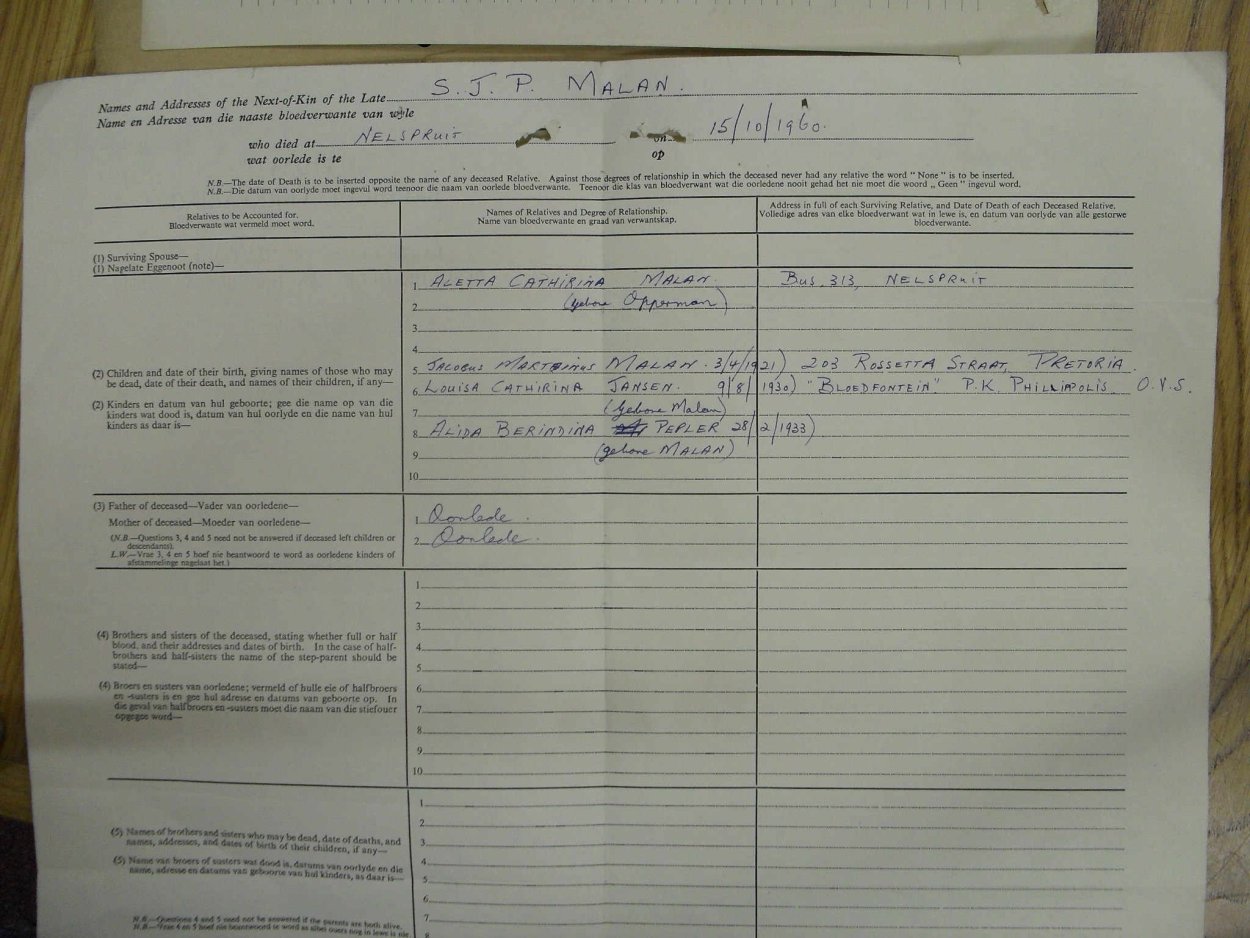 Names and Addresses of the Next-of-Kin of the Late S. J. P. MALAN.
Name en Adresse van die naaste bloedverwante van wyle
who died at NELSPRUIT on 15/10/1960.
wat oorlede is te op
N.B.—The date of Death is to be inserted opposite the name of any deceased Relative. Against those degrees of relationship in which the deceased never had any relative the word "None" is to be inserted.
N.B.—Die datum van oorlyde moet ingevul word teenoor die naam van oorlede bloedverwante. Teenoor die klas van bloedverwant wat die oorledene nooit gehad het nie moet die woord „Geen" ingevul word.
Relatives to be Accounted for.
Bloedverwante wat vermeld moet word.
Names of Relatives and Degree of Relationship.
Name van bloedverwante en graad van verwantskap.
Address in full of each Surviving Relative, and Date of Death of each Deceased Relative.
Volledige adres van elke bloedverwant wat in lewe is, en datum van oorlyde van alle gestorwe
bloedverwante.
(1) Surviving Spouse—
(1) Nagelate Eggenoot (note)—
1 ALETTA CATHIRINA MALAN. Bus 313, NELSPRUIT
2 (gebore Opperman)
3
4
5 JACOBUS MARTHINUS MALAN. 3/4/1921) 203 ROSSETTA STRAAT, PRETORIA.
6 LOUISA CATHIRINA JANSEN. 9/8/1930) "BLOEDFONTEIN" P.K. PHILLIPOLIS. O.V.S.
7 (Gebore Malan)
8 ALIDA BERINDINA PEPLER 28/2/1933)
9 (gebore MALAN)
10
(2) Children and date of their birth, giving names of those who may
be dead, date of their death, and names of their children, if any—
(2) Kinders en datum van hul geboorte; gee die name op van die
kinders wat dood is, datum van hul oorlyde en die name van hul
kinders as daar is—
(3) Father of deceased—Vader van oorledene—
Mother of deceased—Moeder van oorledene—
(N.B.—Questions 3, 4 and 5 need not be answered if deceased left children or
descendants).
L.W.—Vrae 3, 4 en 5 hoef nie beantwoord te word as oorledene kinders of
afstammelinge nagelaat het.)
1 Oorlede.
2 Oorlede.
(4) Brothers and sisters of the deceased, stating whether full or half
blood, and their addresses and dates of birth. In the case of half-
brothers and half-sisters the name of the step-parent should be
stated—
(4) Broers en susters van oorledene; vermeld of hulle eie of halfbroers
en -susters is en gee hul adresse en datums van geboorte op. In
die geval van halfbroers en -susters moet die naam van die stiefouer
opgegee word—
1
2
3
4
5
6
7
8
9
10
(5) Names of brothers and sisters who may be dead, date of deaths, and
names, addresses, and dates of birth of their children, if any—
(5) Name van broers of susters wat dood is, datums van oorlyde en die
name, adresse en datums van geboorte van hul kinders, as daar is—
N.B.—Questions 4 and 5 need not be answered if the parents are both alive.
N.B.—Vrae 4 en 5 hoef nie beantwoord te word as albei ouers nog in lewe is nie
1
2
3
4
5
6
7
8